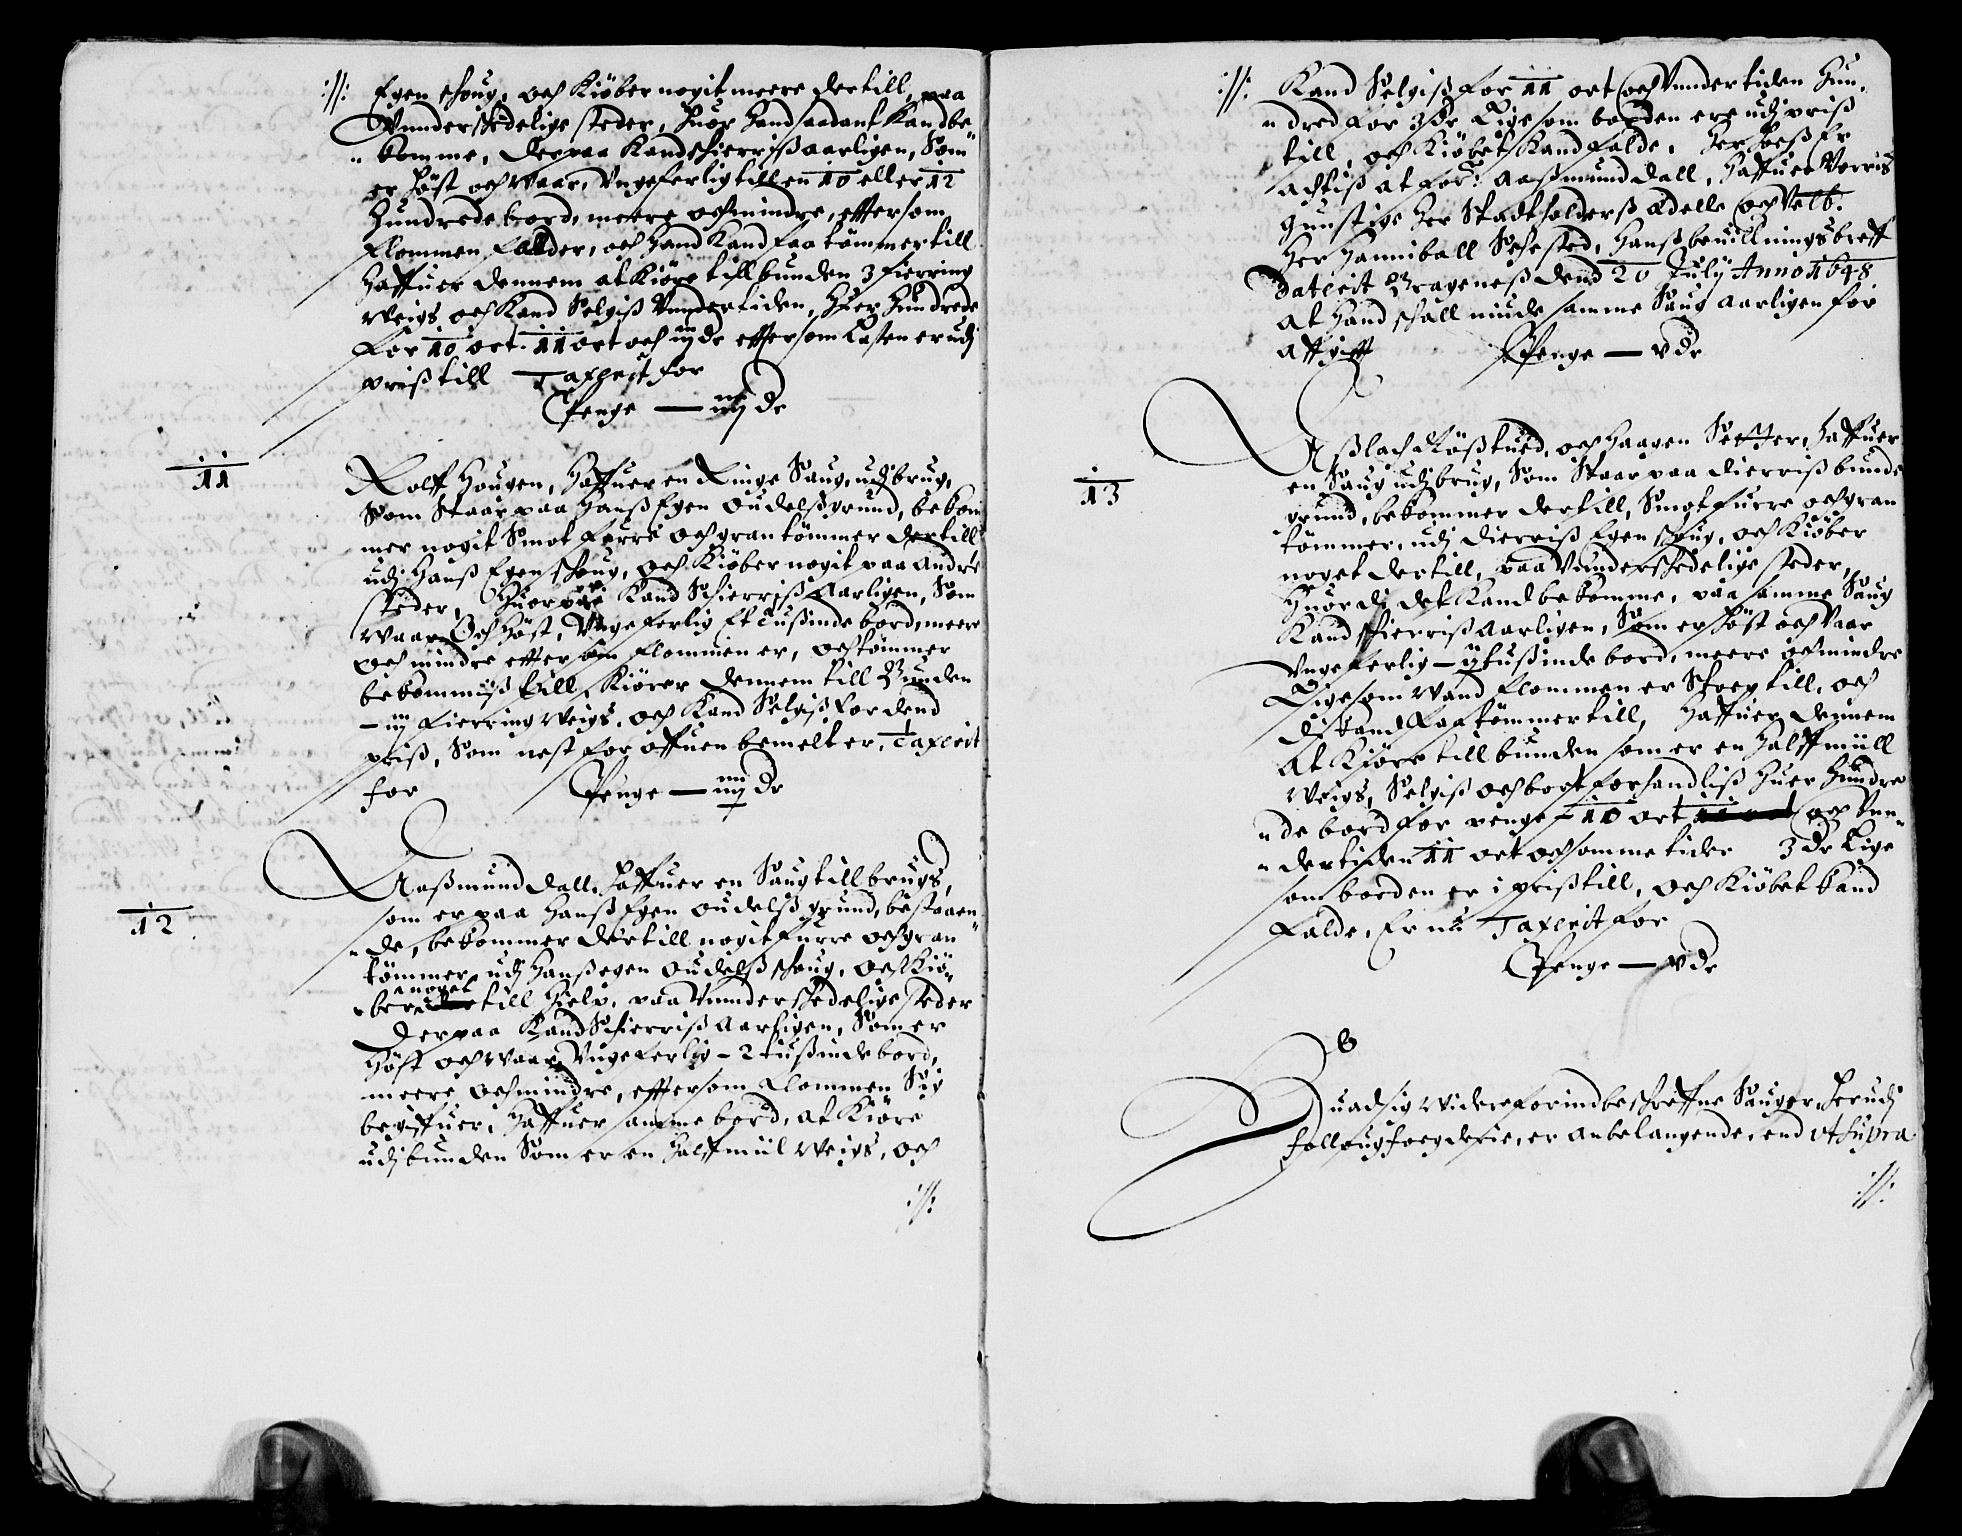 :/: Egen schoug, och Kiøber nogit meere dertill, paa
Vnnderschedelige steder, huor hand saadant Kand be
komme, Derpaa Kand schierriß aarligen, Som
er höst och waar, Vngeferlig till en 10 eller 12
Hundrede bord, meere och mindre, effter som
flommen falder, och hand Kand faa tömmer till
Haffuer dennem at Kiöre till bunden 3 fierring
weigs och Kand Selgiß Vndertiden, Huer Hundrede
for 10 ort. 11 ort och iij de effter som Lasten er udj
priß till Taxerit for
Penge — iiij de
11
Rolff Hougen, Haffuer en Ringe Saug, udj brug,
Som Staar paa hanß Egen Oudelß grund, bekom
mer nogit Smot furre och gran tömmer dertill
udj hanß Egen schoug, och Kiöber nogit paa andre
steder, Huor paa Kand Schierriß Aarligen, Som
Waar Och Höst, Vngeferlig Et Tußinde bord, meere
och mindre effter som flommen er, och tömmer
bekommiß till, Kiörer dennem till Bunden
— iij fierring weigs, och Kand Selgiß for dend
priß, Som nest for offuen bemelt er, Taxerit
for Penge — iiij de
12
Aaßmund Dall, haffuer en Saug till brugs,
som er paa Hanß Egen Oudelß grund, bestaaen
de, bekommer dertill nogit furre och gran
tömmer udj Hanß egen Oudelß schoug, och Kiö
noget
ber till Hielp, paa Vnnderschedelige steder
Derpaa Kand Schierriß Aarligen, Som er
Höst och Waar Vngeferlig - 2 tußinde bord,
meere och mindre, effter som flommen Sig
begiffuer, Haffuer samme bord, at Kiöre
udj bunden Som er en Halff miil weigs, och
:/:
:/: Kand Selgiß for 11 ort och Vnndertiden Hun
dred for 3 de Lige som borden ere udj priß
till, och Kiöbet Kand falde. Her hoeß Er
achtiß at for: Aaßmund Dall, Haffuer Vorris
gunstige Her Stadtholderß Ædelle och Velb:
Her Hanniball Sehested, Hanß beuillningsbreff
Daterit Brageneß dend 20 Julij Anno 1648
At Hand schall niude samme Saug Aarligen for
Affgifft Penge — v de
13
Aßlach Röstued, och Haagen Setter, Haffuer
en Saug udj brug, Som Staar paa dierriß bunde
grund, bekommer dertill, Smot furre och gran
tömmer, udj dierriß Egen schoug, och Kiöber
noget dertill, paa Vnnderschedelige steder,
Huor dj det Kand bekomme, paa samme Saug
Kand schierriß Aarligen, Som er höst och Vaar
Vngeferlig — ij tußinde bord, meere och mindre
Lige som Vand flommen er Stoer till, och
dj kand faa tömmer till, Haffuer dennem
At Kiöre till bunden som er en Halff miill
weigs, Selgiß och bort forhandliß Huer Hundre
de bord for penge - 10 ort och Vnn
dertiden 11 ort och somme tider 3 de Lige
som borden er i priß till, och Kiöbet kand
falde, Er nu Taxerit for
Penge — v de
Huad sig widere forindbeschreffne Sauger, herudj
follougfoegderie, er anbelangende, end vt supra
:/: